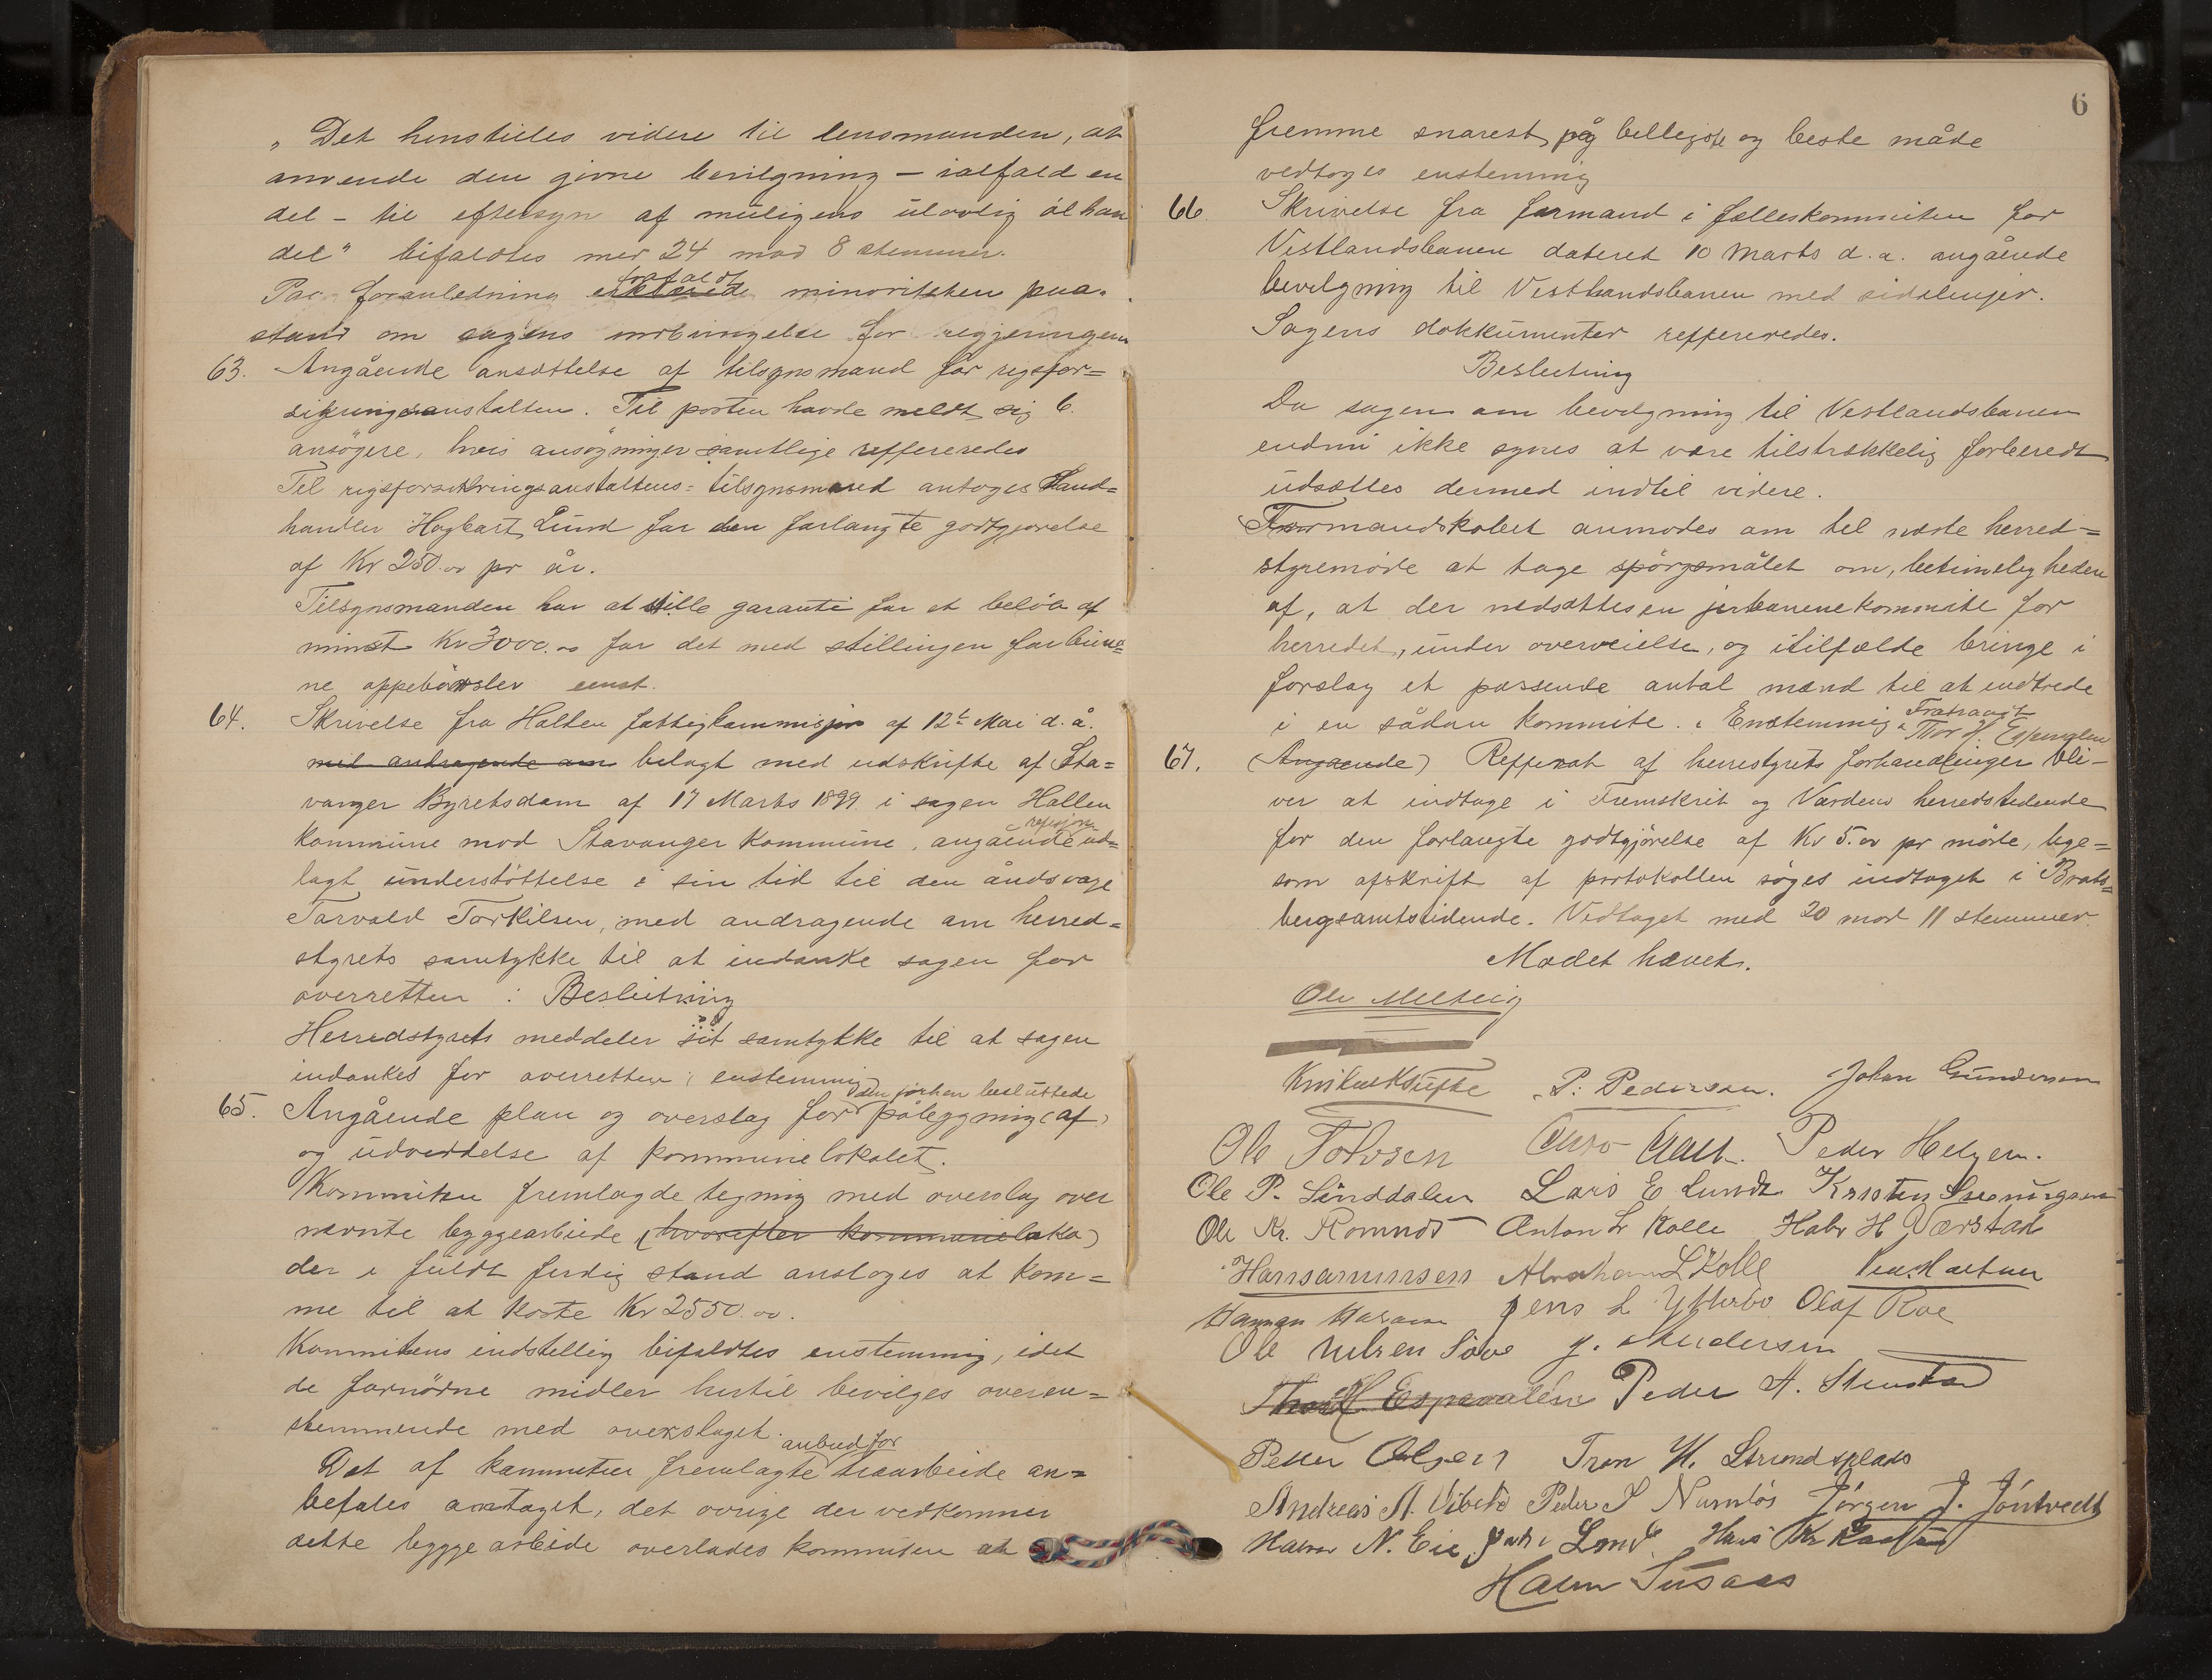 „Det henstilles videre til lensmanden, at
anvende den givne bevilgning – ialfald en
del – til eftersyn af muligens ulovlig ölhan
del" bifaldtes med 24 mod 8 stemmer.
Paa foranledning frafaldt minoriteten paa-
stand om sagens indbringelse for regjeringen
63. Angående ansættelse af tilsynsmand for rigsfor=
sikringsanstalten. Til posten havde meldt sig 6
ansögere, hvis ansögninger samtlige reffereredes
Til rigsforsikringsanstaltens tilsynsmand antoges Land=
handler Hagbart Lund for den forlangte godtgjørelse
af Kr 250.00 pr år.
Tilsynsmanden har at stille garanti for et beløb af
minst Kr 3000.00 for det med stillingen forbun=
ne oppebörsler enst.
64. Skrivelse fra Holten fattigkommisjon af 12te Mai d.å.
med andragende om belagt med udskrifte af Sta=
vanger Byretsdom af 17 Marts 1899 i sagen Hollen
kommune mod Stavanger kommune, angående refusjon ud=
lagt understöttelse i sin tid til den åndsvage
Torvald Torkilsen, med andragende om herred=
styrets samtykke til at indanke sagen for
overretten : Beslutning
Herredstyrets meddeler sit samtykke til at sagen
indankes for overretten; enstemmig
65. Angående plan og overslag for den forhen besluttede påbygning (af)
og udvidelse af kommunelokalet.
Kommiten fremlagde tegning med overslag over
nævnte byggearbeide (hvorefter kommuneloka)
der i fuldt ferdig stand anslages at kom=
me til at koste Kr 2550.00.
Kommitens indstelling bifaldtes enstemmig, idet
de fornödne midler hertil bevilges overen=
stemmende med overslaget.
Det af kommiten fremlagte anbud for træarbeide an=
befales antaget, det øvrige der vedkommer
dette byggearbeide overlades kommiten at
6
fremme snarest på billigste og beste måde
vedtoges enstemmig
66. Skrivelse fra formand i fælleskommiten for
Vestlandsbanen dateret 10 Marts d.a. angående
bevilgning til Vestlandsbanen med sidelinjer.
Sagens dokkumenter reffereredes.
Beslutning
Da sagen om bevilgning til Vestlandsbanen
endnu ikke synes at være tilstrækkelig forberedt
udsættes dermed indtil videre.
Formandskabet anmodes om til næste herred=
styremöde at tage spörgsmålet om, betimeligheden
af, at der nedsættes en jerbanenekommite for
herredet, under overveielse, og itilfælde bringe i
forslag et passende antal mænd til at indtrede
i en sådan kommite. Enstemmig Fratraadt Thor H. Espendalen
67. (Angående) Refferat af herrestyrets forhandlinger bli=
ver at indtage i Fremskrit og Vardens herredstidende
for den forlangte godtgjörelse af Kr 5.00 pr møde, lige=
som afskrift af protokollen söges indtaget i Brats=
bergsamtstidende. Vedtaget med 20 mod 11 stemmer.
Mødet hævet.
Ole Melteig
P. Pedersen. Johan Gundersen
Ole Tolvsen Peder Helgen.
Ole P. Sanddalen Lars E Lunde Kristen
Ole Kr. Romnes Anton L Kolle Halv H Værstad
Hans Amunsen Abraham L Kolle
Jens L Ytterbø Olaf Roe
Ole Nilsen Sove J. Andersen
Thor H Espendalen Peder A. Stensta
Peder Olsen Tron H. Strandsplads
Andreas A. Vibeto Peder S Numløs Jørgen J. Jöntvedt
Halvor N. Eie Lund Hans Kr
Halvor Tusaas